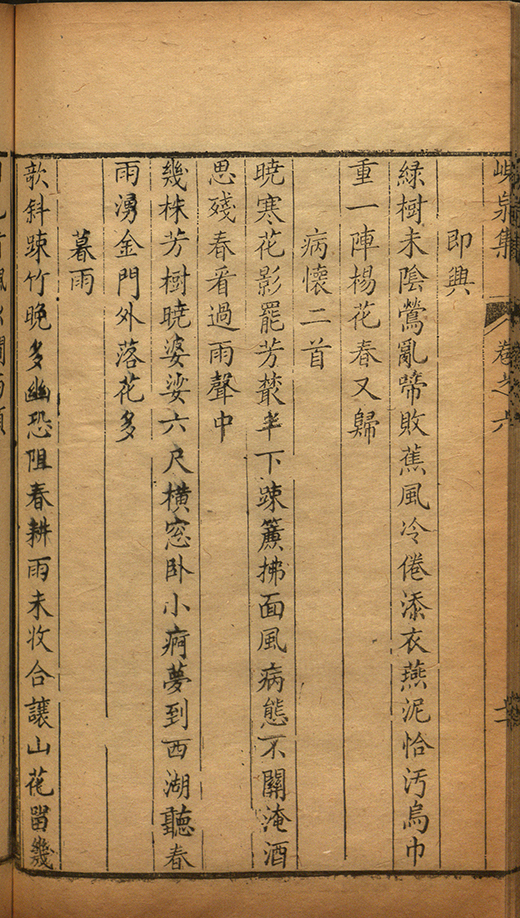 嶼泉集 卷之六
即興
綠樹未陰鶯亂啼敗蕉風冷倦添衣燕泥恰汚烏巾
重一陣楊花春又歸
病懷二首
曉寒花影罷芳叢半下踈簾拂面風病態不關淹酒
思殘春看過雨聲中
幾株芳樹曉婆娑六尺橫窓臥小痾夢到西湖聽春
雨湧金門外落花多
暮雨
欹斜踈竹晚多幽恐阻春耕雨未收合讓山花留幾